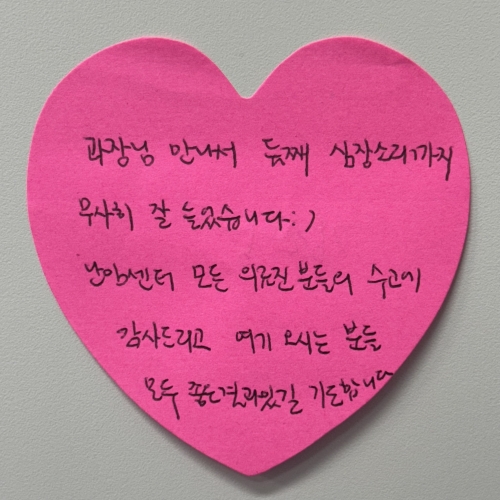 과장님 만나서 둘째 심장소리까지
무사히 잘 들었습니다:)
난임센터 모든 의료진분들의 수고에
감사드리고 여기 오시는 분들
모두 좋은결과있길 기도합니다